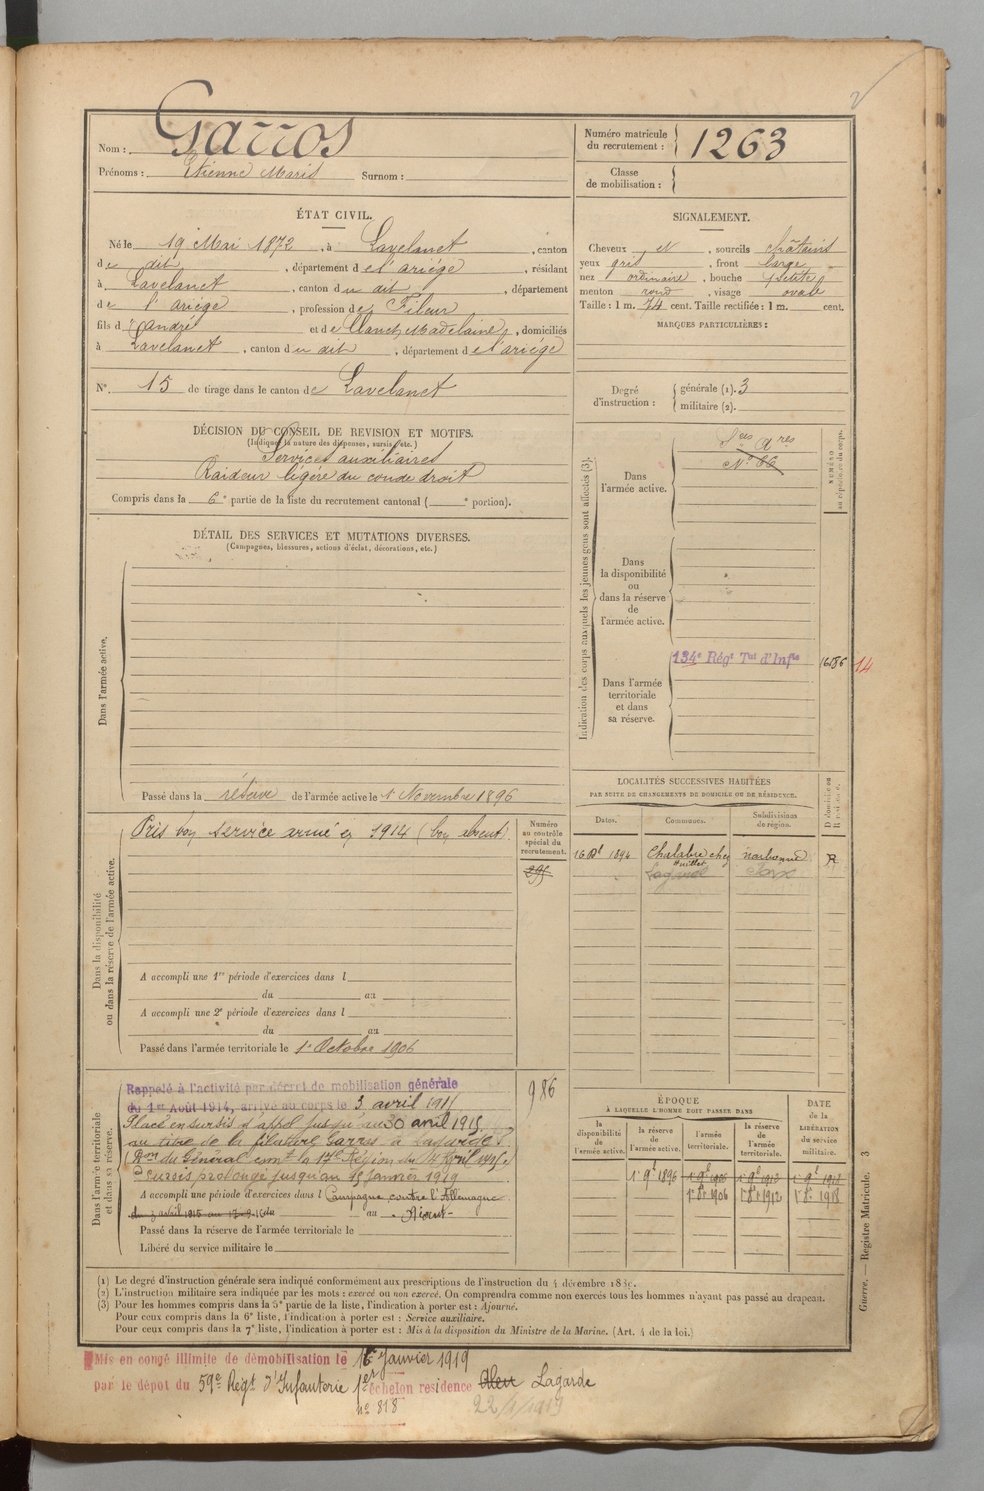 Nom : Garros
Prénoms : Etienne Marie Surnom :
Numéro matricule du recrutement : 1263
Classe de mobilisation :
ÉTAT CIVIL.
Né le 19 Mai 1872, à Lavelanet, canton
de dit, département de l'ariége, résidant
à Lavelanet, canton du dit, département
de l'ariége, profession de Fileur
fils d' André et de Clanet, Madelaine, domiciliés
à Lavelanet, canton du dit, département de l'ariége
N° 15 de tirage dans le canton de Lavelanet
SIGNALEMENT.
Cheveux et, sourcils châtains
yeux gris, front large
nez ordinaire, bouche petite
menton rond, visage ovale
Taille : 1 m. 74 cent. Taille rectifiée : 1 m. cent.
MARQUES PARTICULIÈRES :
Degré d'instruction : générale (1). 3
militaire (2).
DÉCISION DU CONSEIL DE REVISION ET MOTIFS.
(Indiquer la nature des dispenses, sursis, etc.)
Services auxiliaires
Raideur légère du coude droit
Compris dans la 6e partie de la liste du recrutement cantonal ( e portion).
DÉTAIL DES SERVICES ET MUTATIONS DIVERSES.
(Campagnes, blessures, actions d'éclat, décorations, etc.)
Dans l'armée active.
Passé dans la réserve de l'armée active le 1 Novembre 1896
Indication des corps auxquels les jeunes gens sont affectés (3).
NUMÉRO au répertoire du corps.
Dans l'armée active.
Sces Ares
N° 66
Dans la disponibilité ou dans la réserve de l'armée active.
Dans l'armée territoriale et dans sa réserve.
134e Régt Tal d'Infie
14
LOCALITÉS SUCCESSIVES HABITÉES
PAR SUITE DE CHANGEMENTS DE DOMICILE OU DE RÉSIDENCE.
Dates. Communes. Subdivisions de région. D. domicile ou R. résidence.
1894 Chalabre chez narbonne R
Dans la disponibilité ou dans la réserve de l'armée active.
Pris bon service armé en 1914 (bon absent)
Numéro au contrôle spécial du recrutement.
295
A accompli une 1re période d'exercices dans l
du au
A accompli une 2e période d'exercices dans l
du au
Passé dans l'armée territoriale le 1er Octobre 1906
Dans l'armée territoriale et dans sa réserve.
Rappelé à l'activité par décret de mobilisation générale
du 1er Août 1914, arrivé au corps le 3 avril 1915
Placé en sursis d'appel jusqu'au 30 avril 1915
au titre de la filature Garros à Lagarde
(Don du Général comt la 17e Région du 4 Avril 1915)
Sursis prolongé jusqu'au 15 janvier 1919
A accompli une période d'exercices dans l Campagne contre l'Allemagne
du 3 avril 1915 au
Passé dans la réserve de l'armée territoriale le
Libéré du service militaire le
986
ÉPOQUE
À LAQUELLE L'HOMME DOIT PASSER DANS
la disponibilité de l'armée active. la réserve de l'armée active. l'armée territoriale. la réserve de l'armée territoriale.
DATE de la LIBÉRATION du service militaire.
1896 1906 1912 1918
1906 1912 1918
Guerre. — Registre Matricule. 3
(1) Le degré d'instruction générale sera indiqué conformément aux prescriptions de l'instruction du 4 décembre 1889.
(2) L'instruction militaire sera indiquée par les mots : exercé ou non exercé. On comprendra comme non exercés tous les hommes n'ayant pas passé au drapeau.
(3) Pour les hommes compris dans la 5e partie de la liste, l'indication à porter est : Ajourné.
Pour ceux compris dans la 6e liste, l'indication à porter est : Service auxiliaire.
Pour ceux compris dans la 7e liste, l'indication à porter est : Mis à la disposition du Ministre de la Marine. (Art. 4 de la loi.)
Mis en congé illimité de démobilisation le 16 Janvier 1919
par le dépôt du 59e Régt d'Infanterie 1er échelon residence Lagarde
n° 818 22/1/1919